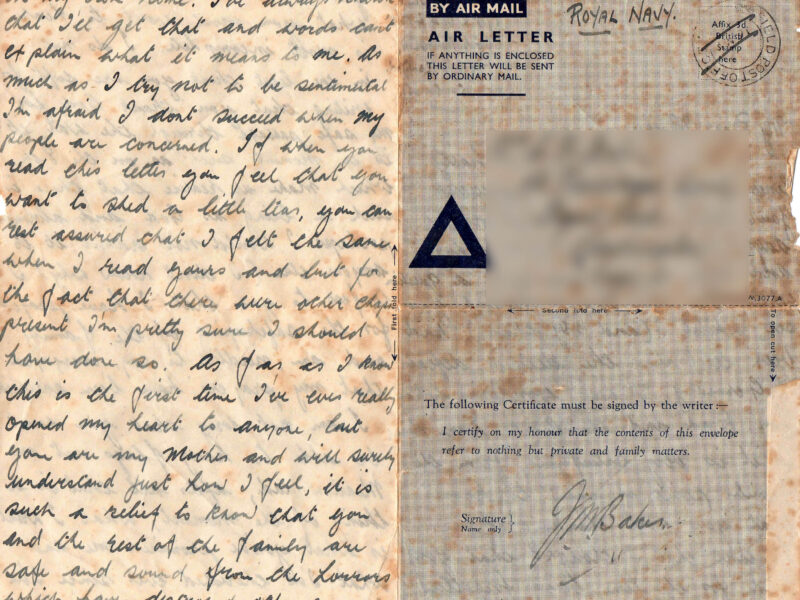 that I'll get that and words can't
explain what it means to me. As
much as I try not to be sentimental
I'm afraid I dont succeed when my
people are concerned. If when you
read this letter you feel that you
want to shed a little tear, you can
rest assured that I felt the same
when I read yours and but for
the fact that there were other chaps
present I'm pretty sure I should
have done so. As far as I know
this is the first time I've ever really
opened my heart to anyone, but
you are my Mother and will surely
understand just how I feel, it is
such a relief to know that you
and the rest of the family are
safe and sound from the horrors
which have
First fold here
BY AIR MAIL
AIR LETTER
IF ANYTHING IS ENCLOSED
THIS LETTER WILL BE SENT
BY ORDINARY MAIL.
ROYAL NAVY.
Affix 3d.
British
Stamp
here
FIELD POST OFFICE
N.3077A
Second fold here
To open cut here
The following Certificate must be signed by the writer:—
I certify on my honour that the contents of this envelope
refer to nothing but private and family matters.
Signature
Name only
JMBaker